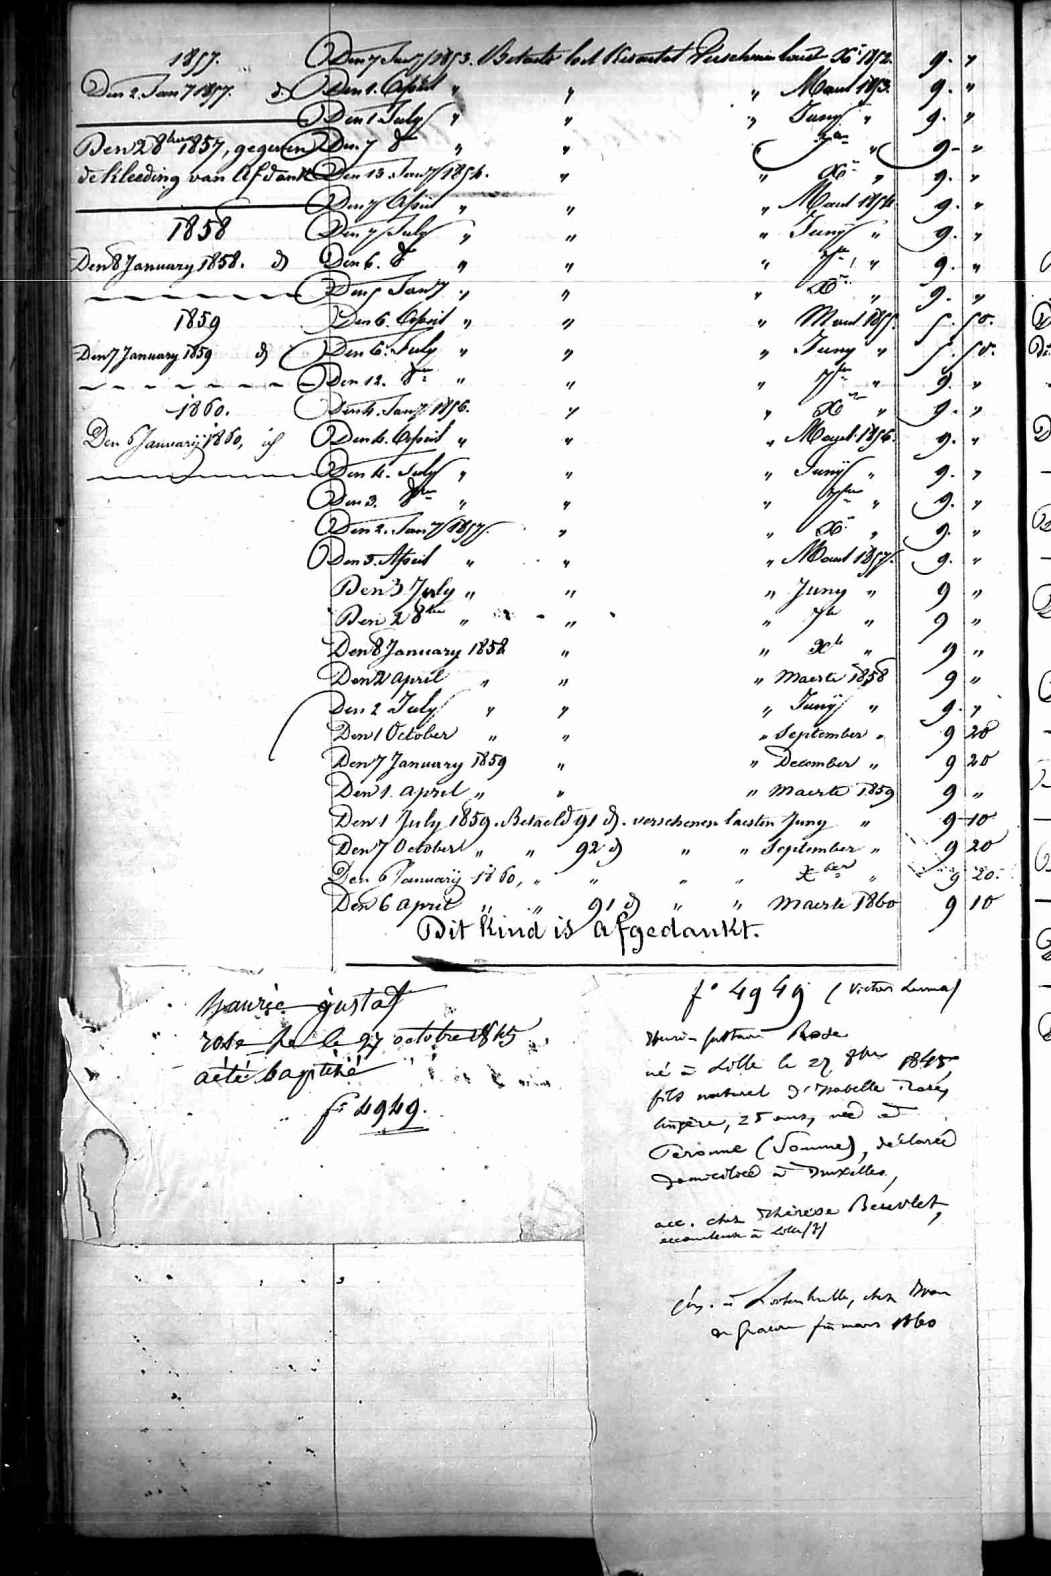 1857.
Den 2. Jan 1857. d)
Den 28ber 1857, gegeven
de kleeding van Afdank
1858
Den 8 January 1858. d)
1859
Den 7 January 1859 d)
1860.
Den 6 January 1860, id
Den 7 Jan 1853. Betaelt het Kwartael Verschenen laest Xr 1852. 9. "
Den 1. April " " " Maert 1853. 9. "
Den 1 July " " " Juny " 9. "
Den 7 8er " " " 7er " 9 - "
Den 13 Jan 1854. " " Xr " 9. "
Den 7 April " " " Maert 1854. 9. "
Den 7 July " " " Juny " 9. "
Den 6. 8r " " " 7er " 9. "
Den 5 Jan " " " Xr " 9. "
Den 6. April " " " Maert 1855. 5. 50.
Den 6. July " " " Juny " 5. 50.
Den 12. 8er " " " 7er " 9. "
Den 4. Jan 1856. " " Xr " 9. "
Den 4. April " " " Maert 1856. 9. "
Den 4. July " " " Junÿ " 9. "
Den 3. 8er " " " 7er " 9. "
Den 2. Jan 1857. " " Xr " 9. "
Den 3. April " " " Maert 1857. 9. "
Den 3 July " " " Juny " 9 "
Den 2 8ber " " " 7b " 9 "
Den 8 January 1858 " " Xb " 9 "
Den 2 april " " " Maerte 1858 9 "
Den 2 July " " " Junÿ " 9. "
Den 1 October " " " September " 9 20
Den 7 January 1859 " " December " 9 20
Den 1 april " " " maerte 1859 9 "
Den 1 July 1859. Betaeld 91 d). verschenen laesten Juny " 9 10
Den 7 October " " 92 d) " " September " 9 20
Den 6 Januarÿ 1860, " " " " Xber " 9 20.
Den 6 april " " 91 d) " " maerte 1860 9 10
Dit kind is afgedankt.
gustaf
rose le 27 octobre 1845
aété baptisé
fo 4949.
fo 4949 (Victor )
Henri-Gustave Rose
né à Lille le 27 8bre 1845,
fils naturel d'Isabelle Rose,
lingère, 25 ans, née à
Peronne (Somme), déclarée
domiciliée à Bruxelles,
acc. chez Thérèse
accoucheuse à
à Lootenhulle, chez
fin mars 1860